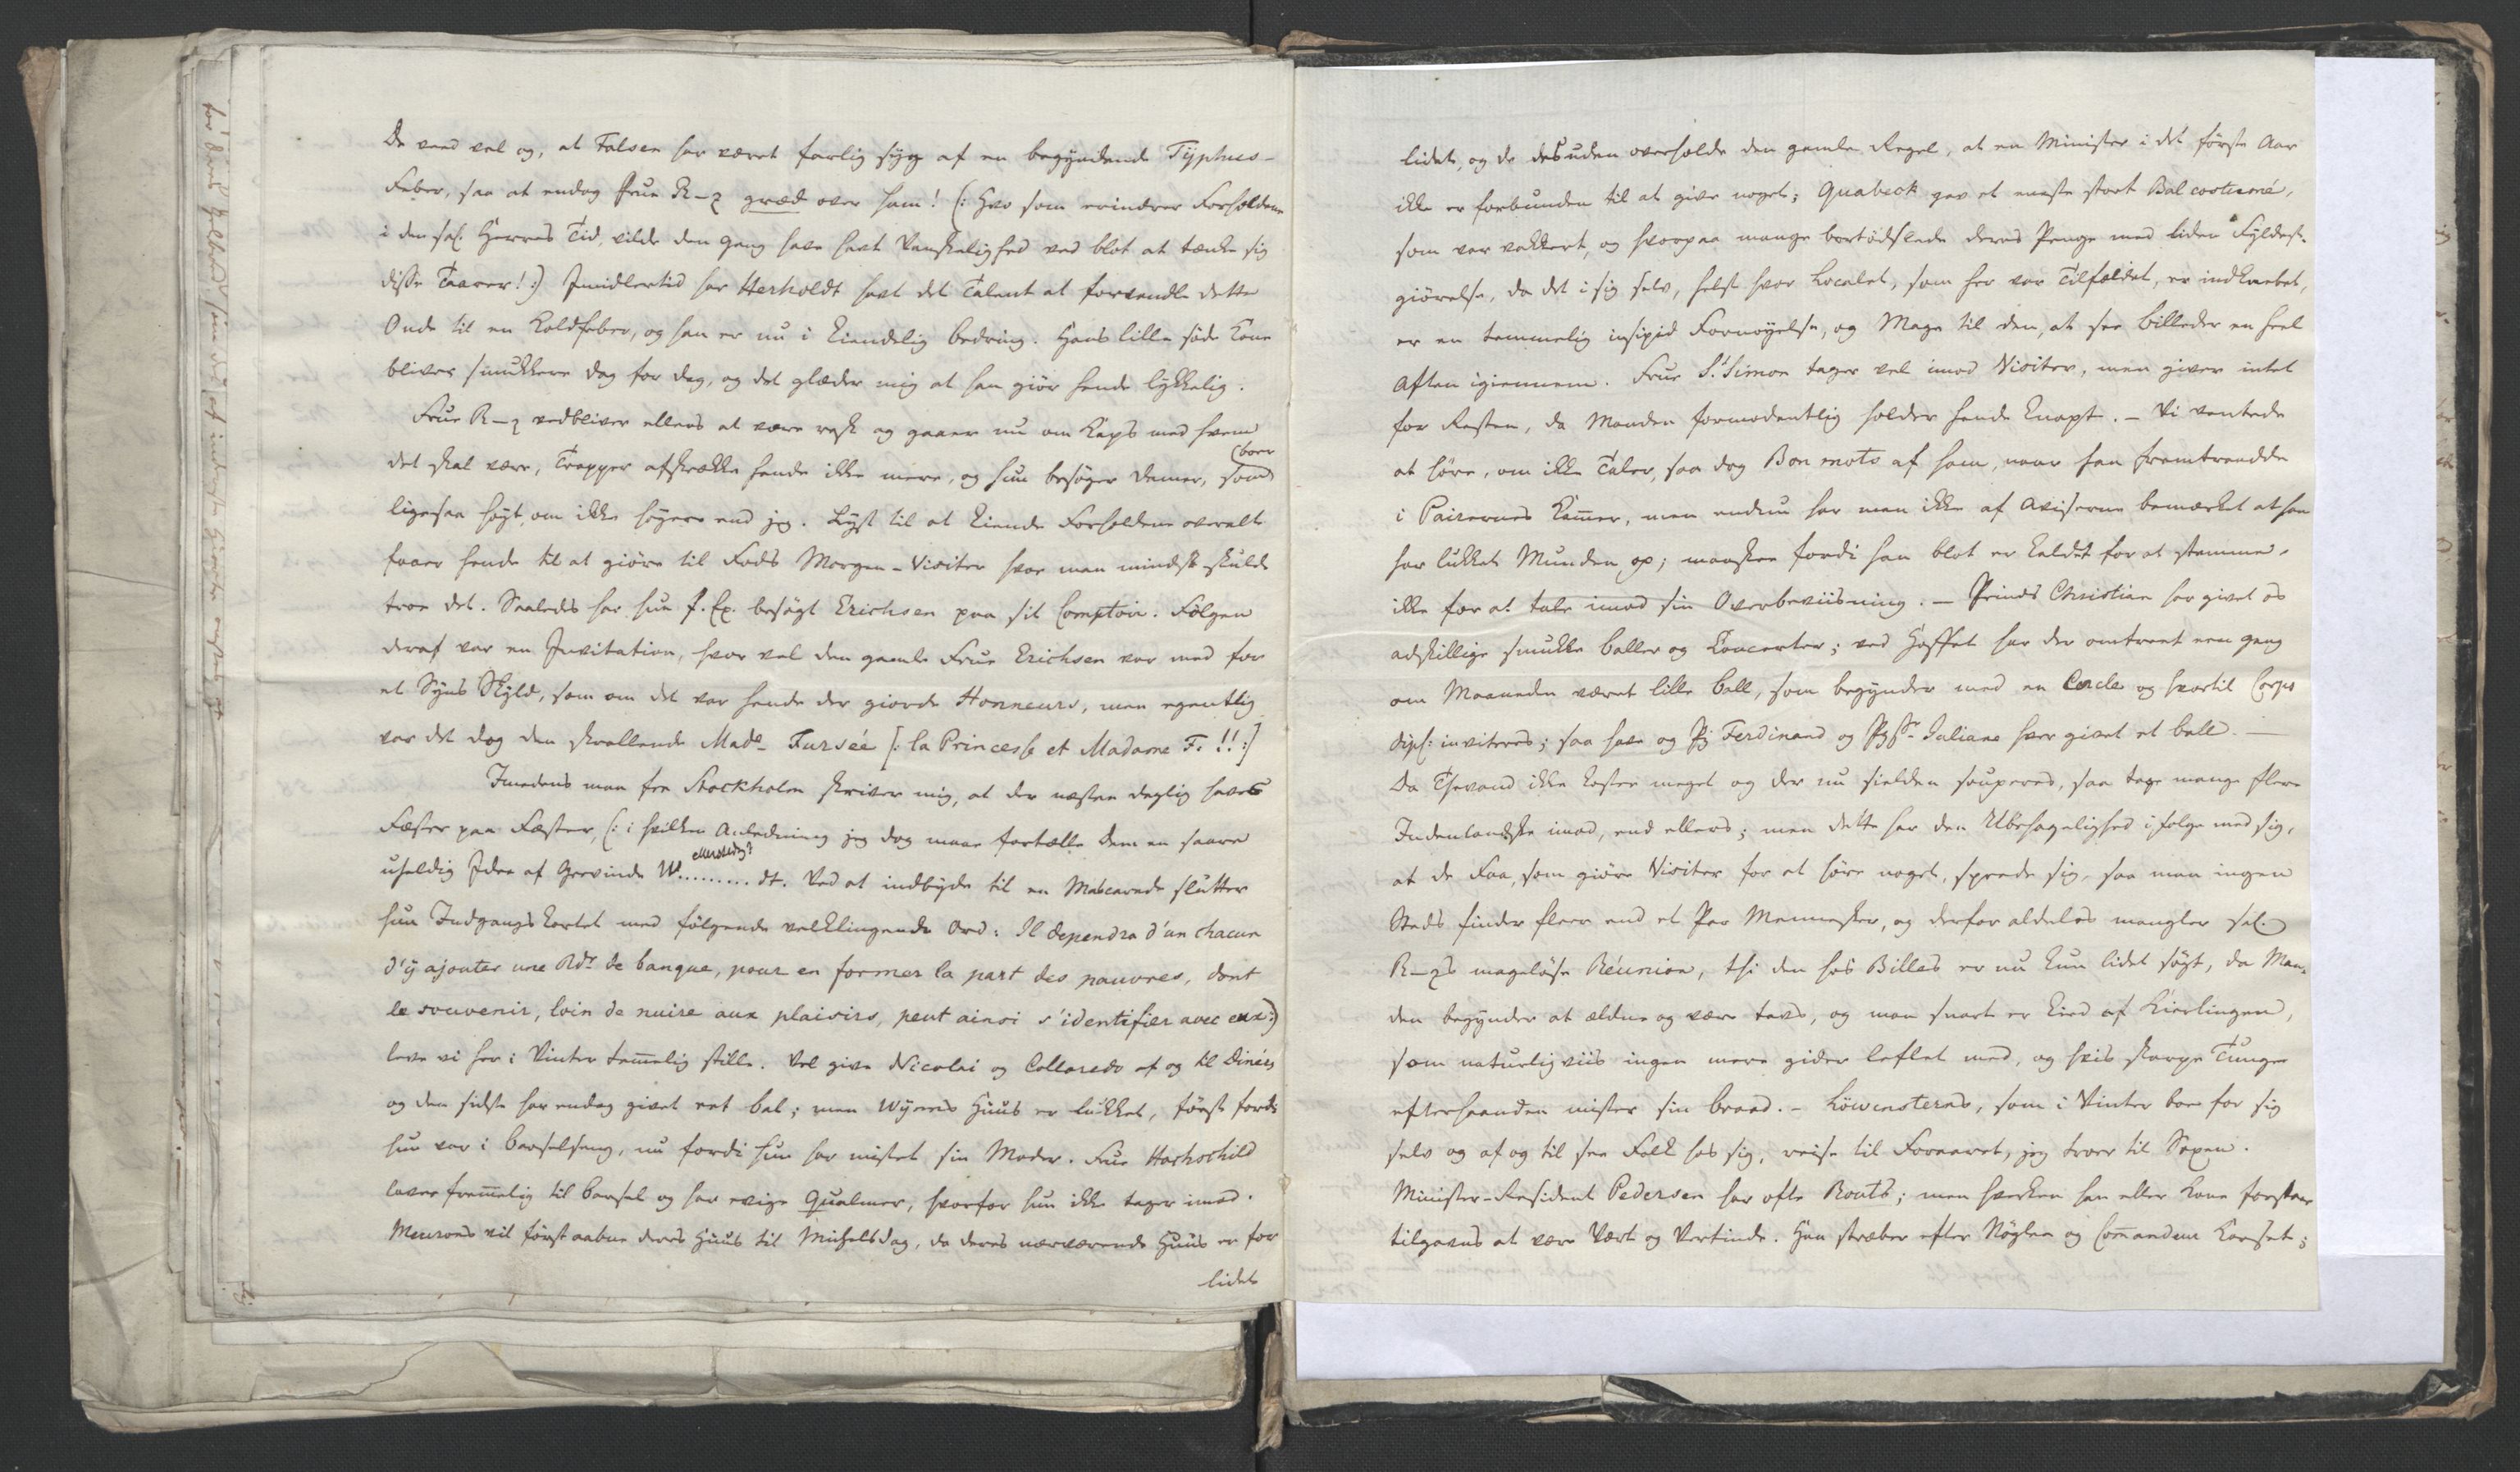 De veed vel og, at Falsen har været farlig syg af en begyndende Typhus-
Feber, saa at endog Frue R-z græd over ham! (: Hvo som erindrer Forholdene
i den sal. Herres Tid, vilde den Gang have havt Vanskelighed ved blot at tænke sig
disse Taarer! :) Imidlertid har Herholdt havt det Talent at forvandle dette
Onde til en Koldfeber, og han er nu i kiendelig Bedring. Hans lille søde Kone
bliver smukkere Dag for Dag, og det glæder mig at han giør hende lykkelig.
Frue R-z vedbliver ellers at være rask og gaaer nu om Kaps med hvem
det skal være, Trapper afskrække hende ikke mere, og hun besøger Damer, som
(boer
ligesaa høyt, om ikke høyere end jeg. Lyst til at kiende Forholdene overalt
faaer hende til at giøre til Fods Morgen-Visiter hvor man mindst skulde
troe det. Saaledes har hun f. Ex. besøgt Erichsen paa sit Comptoir. Følgen
deraf var en Invitation, hvor vel den gamle Frue Erichsen var med for
et Syns Skyld, som om det var hende der giorde Honneurs, men egentlig
var det dog den skrallende Made Fursée [: la Princesse et Madame F. !! :]
Imedens man fra Stockholm skriver mig, at der næsten daglig haves
Fester paa Fester, (: i hvilken Anledning jeg dog maae fortælle Dem en saare
uheldig Idee af Grevinde W......... dt. Ved at indbyde til en Mascarade slutter
hun Indgangskortet med følgende velklingende Ord: Il dependra d'un chacun
d'y ajouter une Rdr de banque, pour en former la part des pauvres, dont
le souvenir, loin de nuire aux plaisirs, peut ainsi s'identifier avec eux :)
leve vi her i Vinter temmelig stille. Vel give Nicolai og Colloredo af og til Dinéer
og den sidste har endog givet eet Bal; men Wynns Huus er lukket, først fordi
hun var i Barselseng, nu fordi hun har mistet sin Moder. Frue Hochschild
laver fremmelig til Barsel og har evige Qualmer, hvorfor hun ikke tager imod.
Meurons vil først aabne deres Huus til Michelsdag, da deres nærværende Huus er for
lidet
lidet, og de desuden overholde den gamle Regel, at en Minister i det første Aar
ikke er forbunden til at give noget; Quabeck gav et eneste stort Bal costumé,
som var vakkert, og hvorpaa mange bortødslede deres Penge med liden Fyldest-
giørelse, da det i sig selv, helst hvor Localet, som her var Tilfældet, er indknebet,
er en temmelig insipid Fornøyelse, og Mage til den, at see Billeder en heel
Aften igiennem. Frue St Simon tager vel imod Visiter, men giver intet
for Resten, da Manden formodentlig holder hende knapt. - Vi ventede
at høre, om ikke Taler, saa dog Bon mots af ham, naar han fremtraadde
i Pairernes Kamer, men endnu har man ikke af Aviserne bemærket at han
har lukket Munden op; maaskee fordi han blot er kaldet for at stemme,
ikke for at tale imod sin Overbeviisning. - Prinds Christian har givet os
adskillige smukke Baller og Concerter; ved Hoffet har der omtrent een Gang
om Maaneden været lille Ball, som begynder med en Cercle og hvortil Corps
dipl: inviteres; saa have og Pz Ferdinand og Pzsse Juliane hver givet et Ball. -
Da Thevand ikke koster meget og der nu sielden souperes, saa tage mange flere
Indenlandske imod, end ellers; men dette har den Ubehagelighed i Følge med sig,
at de Faa, som giøre Visiter for at høre noget, sprede sig, saa man ingen
Steds finder fleer end et Par Mennesker, og derfor aldeles mangler sal.
R-zs mageløse Réunion, thi den hos Billes er nu kun lidet søgt, da Man-
den begynder at ældne og være taus, og man snart er kied af Kierlingen,
som naturligviis ingen mere gider leflet med, og hvis skarpe Tunge
efterhaanden mister sin Braad. - Löwensterns, som i Vinter boe for sig
selv og af og til see Folk hos sig, reise til Foraaret, jeg troer til Sachsen.
Minister-Resident Pedersen har ofte Routs; men hverken han eller Kone forstaaer
tilgavns at være Vært og Vertinde. Han stræber efter Nøglen og Comandeur Korset;